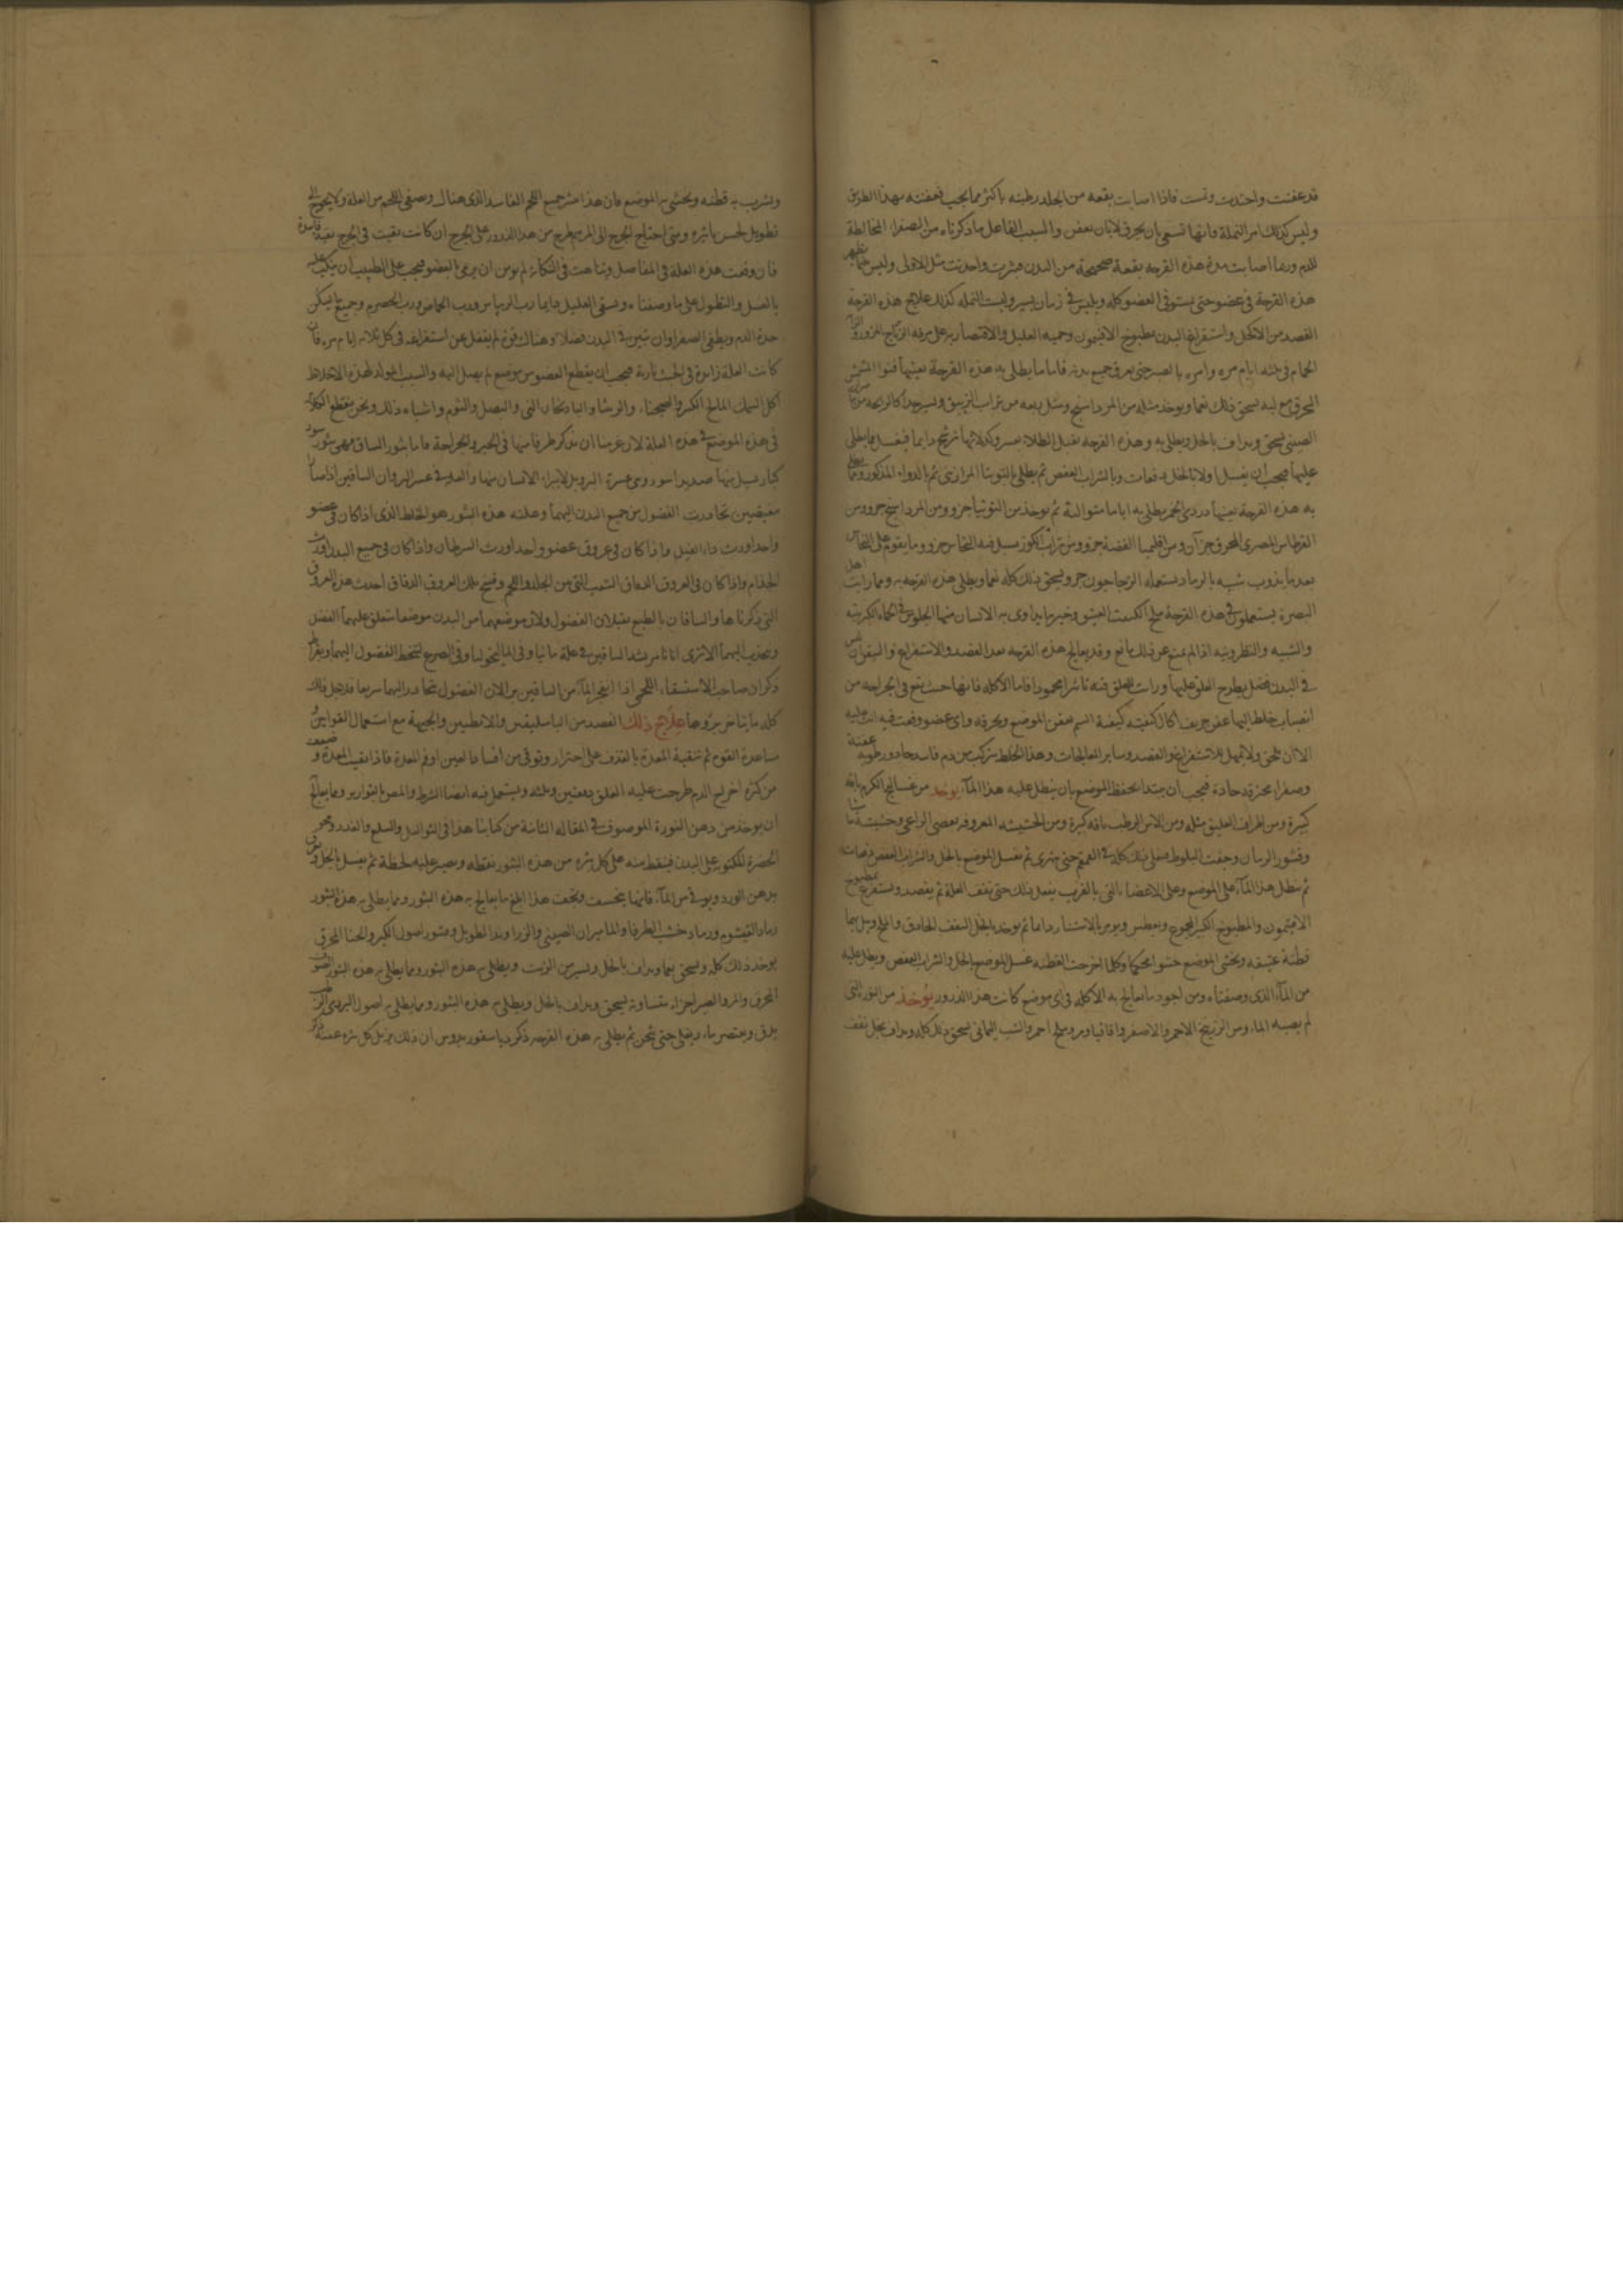 قد عفنت واحتدت ونمت فاذا اصابت بقعه من الجلد رطبته باكثر مما يجب فعفنته بهذا الطريق
وليس كذلك امر النملة فانها تسعى بان يحرق لا بان يعفن والسبب الفاعل ما ذكرناه من الصفراء المخالطة
للدم وربما اصابت مدة هذه القرحه بقعة صحيحة من البدن فبثرت واحدثت مثل الاولى وليس يظهر
هذه القرحة فى عضو حتى يستوفى العضو كله ويلبس فى زمان يسير وليست النمله كذلك علاج هذه القرحة
الفصد من الاكحل واستفراغ البدن بمطبوخ الافتيمون وحميه العليل والاقتصار به على مرقه
الحمام فى ثلثه ايام مره وامره بالصبر حتى يعرق جميع بدنه فاما ما يطلى به هذه القرحة بعينها فنوا المشمش
المحرق مع لبه يسحق ذلك نعما ويوخذ مثله من المرداسنج ومثل ربعه من تراب الزيبق
الصينى يسحق ويداف بالخل ويطلى به وهذه القرحه تقبل الطلاء بعسر وكد لانها ترشح دايما فيغسل ما يطلى
عليها فيجب ان يغسل اولا بالخل دفعات وبالشراب العفص ثم يطلى بالتوتيا المرازبى ثم بالدواء المذكور
به هذه القرحة بعينها دردى الخمر يطلى به اياما متوالية ثم يوخذ من التوتيا جزو ومن المرداسنج جزو ومن
القرطاس المصرى المحرق جزآن ومن اقليميا الفضة جزو ومن تراب الكوز سبك فيه النحاس جزو وما يقوم على النحاس
بعد ما يذوب شبيه بالرماد يستعمله الزجاجون جزو يسحق ذلك كله نعما ويطلى هذه القرحه به ومما رايت اهل
البصرة يستعملون فى هذه القرحة ملح العتيق وخير ما يداوى به الانسان منها الجلوس فى الحماه الكبريتيه
والشبيه والنطرونيه اذا لم يمنع عن ذلك مانع وقد يعالج هذه القرحه بعد الفصد والاستفراغ
فى البدن فضل يطرح العلق عليها ورايت للعلق فيه تاثيرا محمودا فاما الاكله فانها حيث تقع فى الجراحه من
انصباب خلط اليها عفن حريف اكال كيفيته كيفية السم يعفن الموضع ويحرقه واى عضو وقعت فيه اتت عليه
الا ان تلحق ولا تمهل للاستفراغ والفصد وساير المعالجات وهذا الخلط يتركب من دم فاسد حاد ورطوبه عفنة
وصفراء محترقه حادة فيجب ان يبتدا بحفظ الموضع بان ينطل عليه هذا المآء يوخذ من عساليج الكرم باقه
كبيرة ومن اطراف العليق مثله ومن الاس الرطب باقه كبيرة ومن الحشيشه المعروفه بعصى الراعى
وقشور الرمان وجفت البلوط فيغلى ذلك كله فى القمقم حتى يتهرى ثم تغسل الموضع بالخل والشراب العفص دفعات
ثم تنطل هذا المآء على الموضع وعلى الاعضاء التى بالقرب يفعل ذلك حتى تقف العلة ثم يفصد ويستفرغ بمطبوخ
الافتيمون والمطبوخ الكبير المجموع ويعطس ويومر بالاستنثار دايما ثم يوخذ بالخل الثقيف الحاذق والملح ويبل بهما
قطنة عتيقه وتحشى الموضع حشوا محكما وكلما اخرجت القطنه غسل الموضع بالخل والشراب العفص ويطل عليه
من المآء الذى وصفناه ومن اجود ما يعالج به الاكله فى اى موضع كانت هذا الذرور يوخذ من النورة التى
لم يصبه الماء ومن الزرنيخ الاحمر والاصفر واقاقيا ومر وملح احمر والشب اليمانى يسحق ذلك كله ويداف بخل ثقيف
ويشرب به قطنه وتحشى به الموضع فان هذا يثر جميع اللحم الفاسد الذى هناك ويصفى اللحم من العلة ولا يحوج الى
تطويل لحسن تاثيره ومتى احتاج الجرح الى المرهم طرح من هذا الذرور على الجرح ان كانت بقيت فى الجرح بقية فاسدة
فان وقعت هذه العلة فى المفاصل وتناهت فى النكاية لم يومن ان يرمى بالعضو فيجب على الطبيب ان يكب عليه
بالغسل والنطول على ما وصفناه ويسقى العليل دايما رب الريباس ورب الحماض ورب الحصرم وجميع ما يسكن
حدة الدم ويطفى الصفرا وان تبين فى البدن فضلا وهناك قوة لم يغفل عن استفراغه فى كل ثلاثه ايام مره فان
كانت العلة زايدة فى الخبث ناريه فيجب ان يقطع العضو من موضع لم يصل اليه والسبب المولد لهذه الاخلاط
اكل السمك المالح الكنعد والصحناه والربيثا والباذنجان النى والبصل والثوم واشباه ذلك ونحن نقطع الكلام
فى هذه الموضع فى هذه العلة لان عزمنا ان نذكر طرفا منها فى الجبر والجراحة فاما بثور الساق فهى بثور سود
كبار يسيل منها صديد اسود وهى عسرة البرو بل لا يبراء الانسان منها والعله فى عسر البرو ان الساقين
مغيضين تحادرت الفضول من جميع البدن اليهما وعلته هذه البثور هو الخلط الذى اذا كان فى عضو
واحد اورث داء الفيل واذا كان فى عروق عضو واحد اورث السرطان واذا كان فى جميع البدن اورث
الجذام واذا كان فى العروق الدقاق الشعب التى من الجلد واللحم وفسخ تلك العروق الدقاق احدث هذه العروق
التى ذكرناها والساقان بالطبع يقبلان الفضول ولان موضعهما من البدن موضعا يتعلق عليهما الفضل
وينجذب اليهما الا ترى انا نامر بشد الساقين فى علة مانيا وفى الماليخوليا وفى الصرع لينحط الفضول اليهما
ذكر ان صاحب الاستسقاء اللحمى اذا انفجر المآء من الساقين برا لان الفضول تتحادر اليهما سريعا فلاجل ذلك
كله ما يتاخر بروها علاج ذلك الفصد من الباسليقين والابطيين والجبهة مع استعمال القوابين
مساعدة القوه ثم تنقية المعدة بالقذف على احتراز وتوقى من افساد العين او فم المعدة فاذا نقيت المعدة وضعفت
من كثره اخراج الدم طرحت عليه العلق دفعتين وثلثه ويستعمل فيه ايضا الشرط والمص بالقوارير ومما يعالج
ان يوخذ من دهن النورة الموصوف فى المقاله الثانية من كتابنا هذا فى الثواليل والسلع والغدد ومحو
الخضرة المكتوبه على البدن فينقط منه على كل بثره من هذه البثور نقطه ويصبر عليه لحظة ثم يغسل بالخل
بدهن الورد ويوقى من المآء فانها تنخسف وتجف هذا ابلغ ما يعالج به هذه البثور ومما يطلى به هذه البثور
رماد القيشوم ورماد خشب الطرفا والماميران الصينى والزراوند الطويل وقشور اصول الكبر والحنا المحرق
يوخذ ذلك كله ويسحق نعما ويداف بالخل ويسير من الزيت ويطلى به هذه البثور ومما يطلى به هذه البثور
المحرق والمر والصبر اجزاء متساويه يسحق ويداف بالخل ويطلى به هذه البثور ومما يطلى به اصول البردى الرطب
يدق ويعتصر ماءه ويغلى حتى يثخن ثم يطلى به هذه القرحه ذكر دياسقوريدوس ان ذلك مزيل كل بثره عفنة